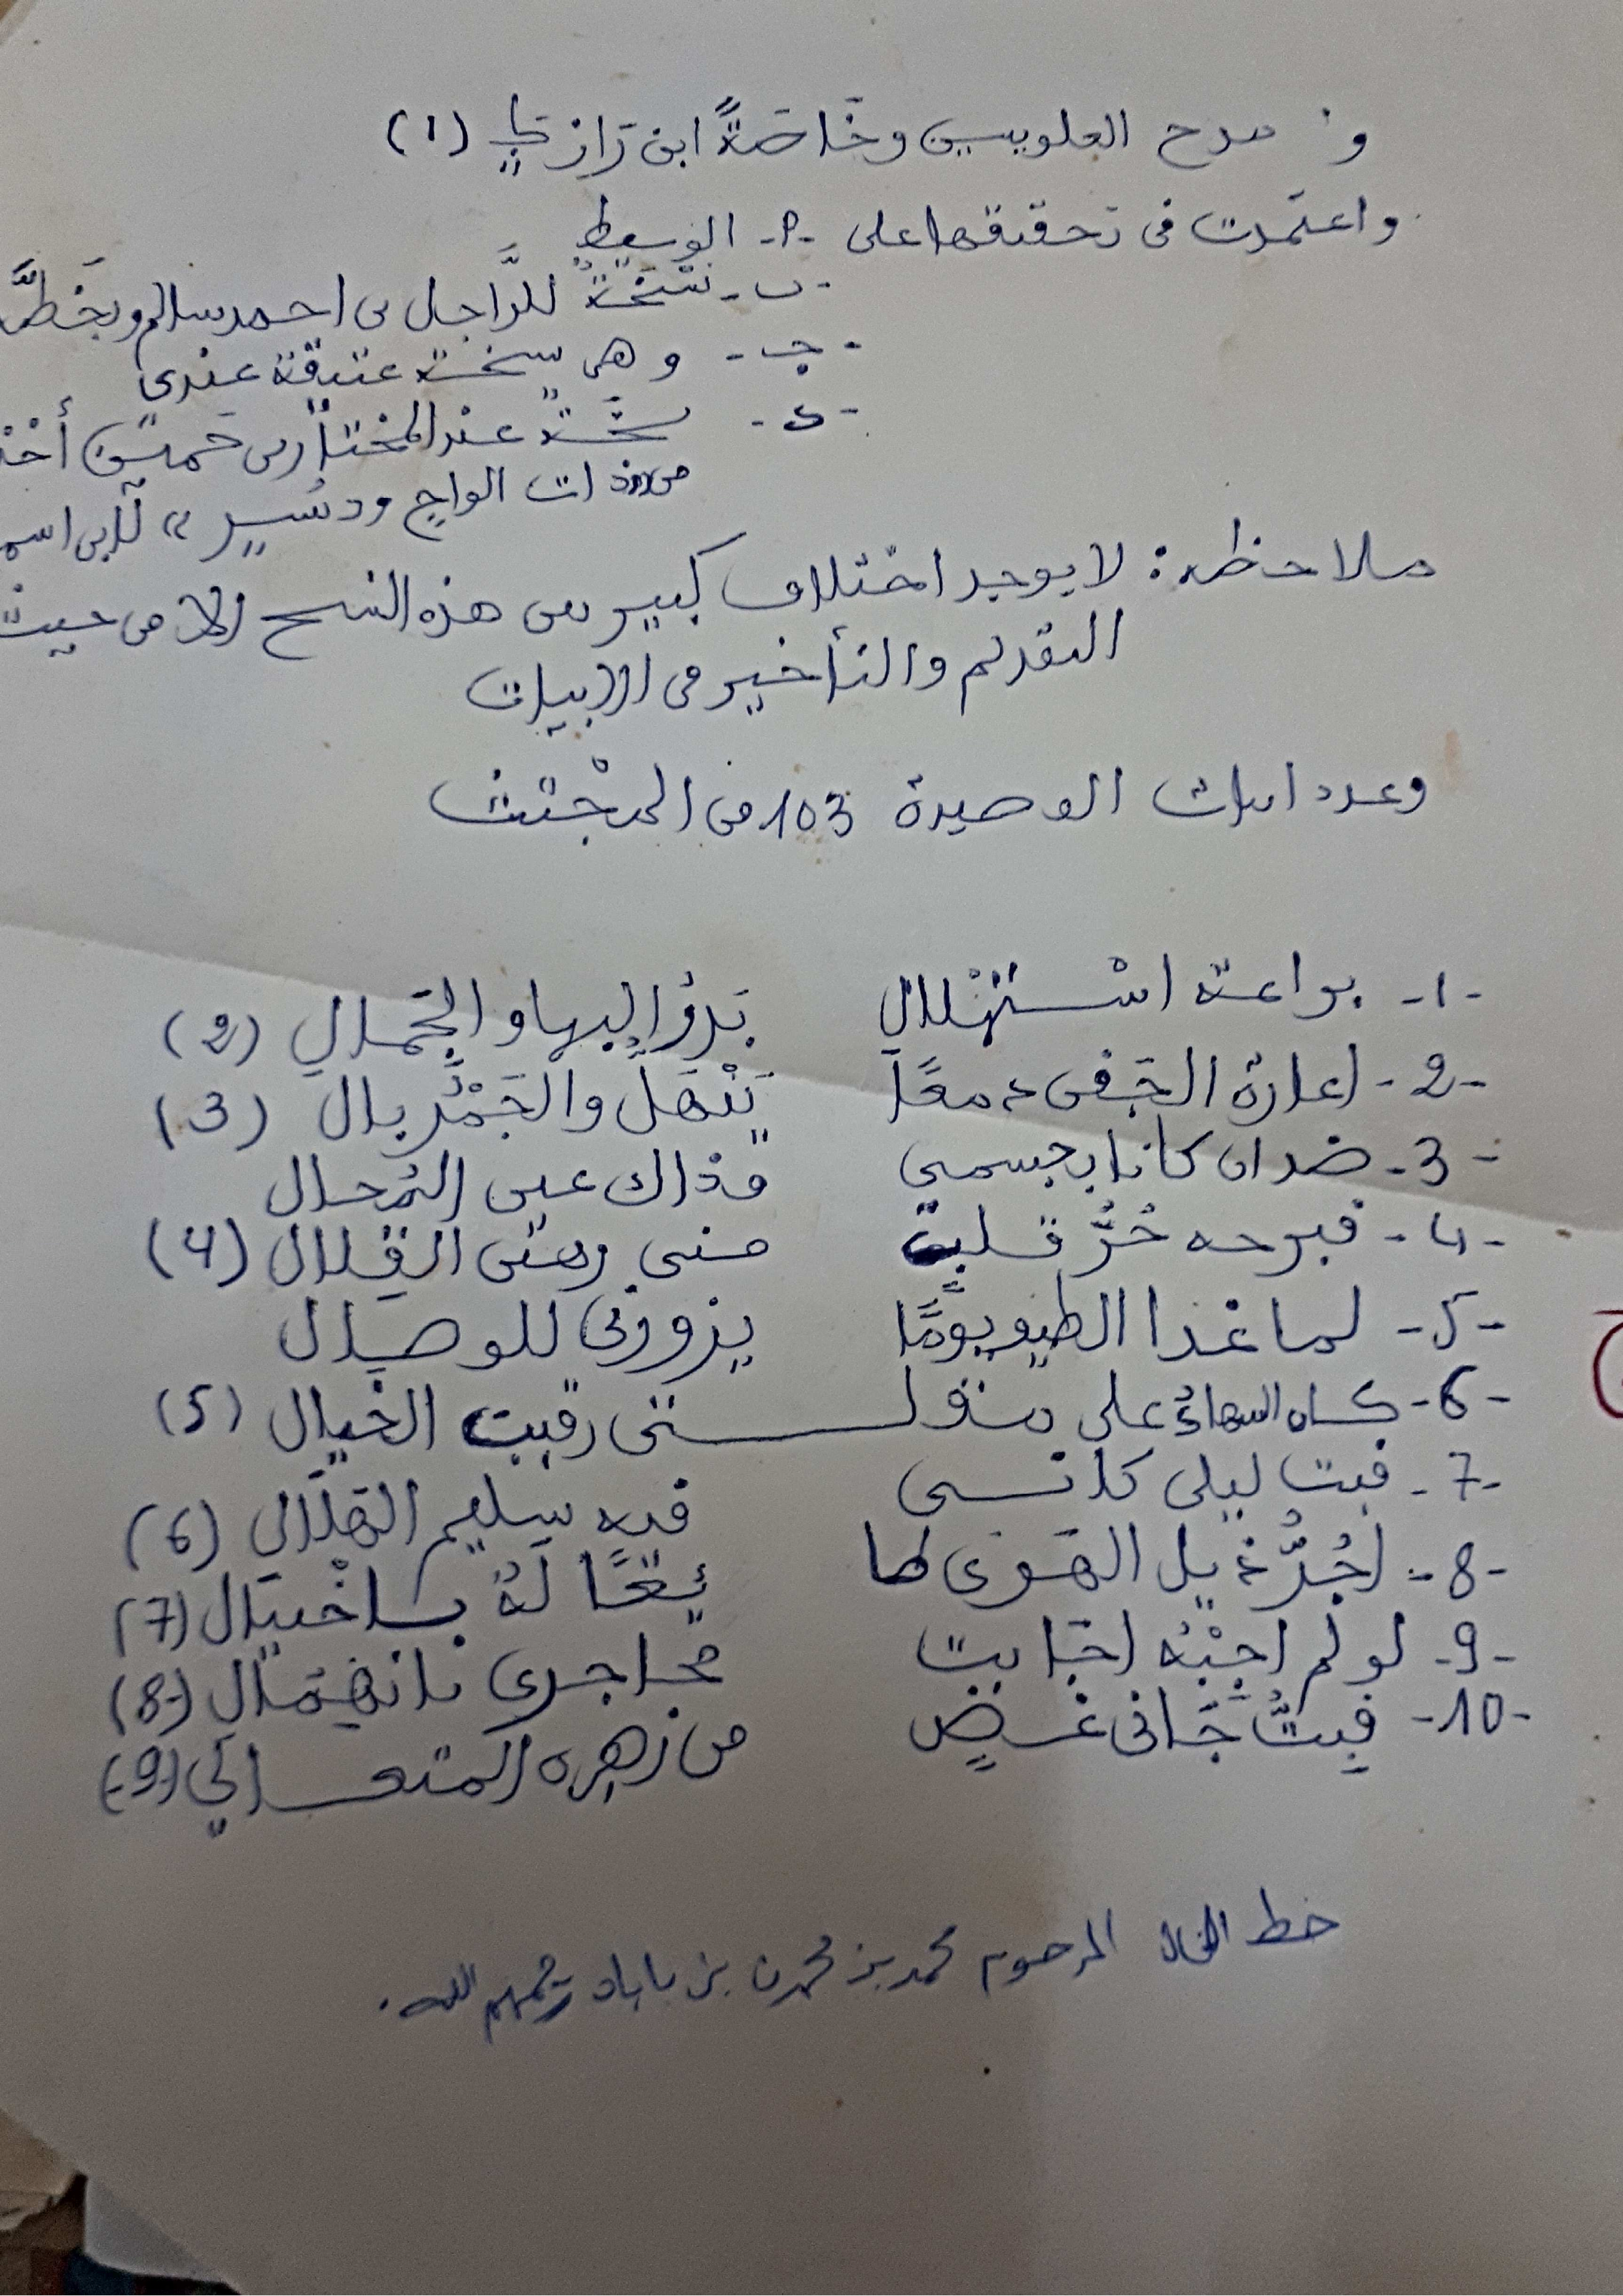 و مدح العلويين وخَاصَةً ابن رَازكَ (1)
واعتمدت في تحقيقها على -أ- الوسيط
-ب- نسْخة للرَّاجل بن احمد سالم وبخَطِّ
-ج- وهي نسخة عتيقة عندى
-د- نسخة عند المختار بن حمين أخذ
من ذات الواح ودسر» لابى اسم
ملاحظة: لا يوجد اختلاف كبير بين هذه النسخ إلا من حيث
التقديم والتأخير في الأبيات
وعدد ابيات القصيدة 103 من المجْتث
-1- براعة اسْتهْلال بَدْؤُ البها والجَمال (2)
-2- إعارة الجَفن دمعًا يَنْهَلّ والجَمْرُ بال (3)
-3- ضدان كانا بجسمى وذاك عين المُحال
-4- فبرحه حُرُّ قلبى منى رهين القلال (4)
-5- لما غدا الطيف يومًا يزورنى للوصال
-6- كاه السهادُ على بنولنى رقيب الخيال (5)
-7- فبت ليلى كأنى فيه سليم الهلال (6)
-8- أجُرُّ ذيل الهوى لما يُعًا لهُ باخْتيال (7)
-9- لو لم أجبْهُ أجابت محاجرى بانهمال (8)
-10- فبتُّ جَانى غَضٍ من زهره المتعالى (9)
خط الخال المرحوم محمد بن محمدن بن باباه رحمهم الله.